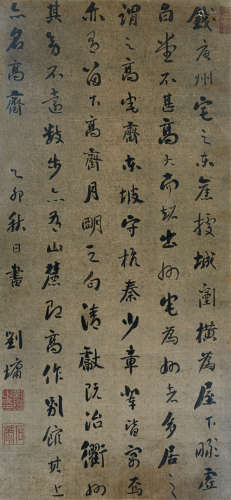 錢唐州宅之東舊據城闉橫為屋下瞰虛
白堂不甚高大而超出州宅為州者多居之
謂之高齋東坡守杭秦少章輩皆寓焉
亦有留下高齋月明之句清獻既治衢州
其旁不遠數步亦有山麓即高作別館其上
亦名高齋 乙卯秋日書 劉墉